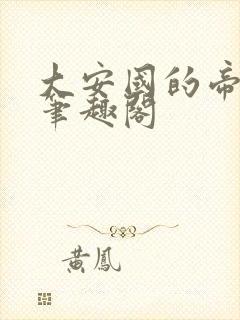 大安國的帝
筆趣閣
黃鳳